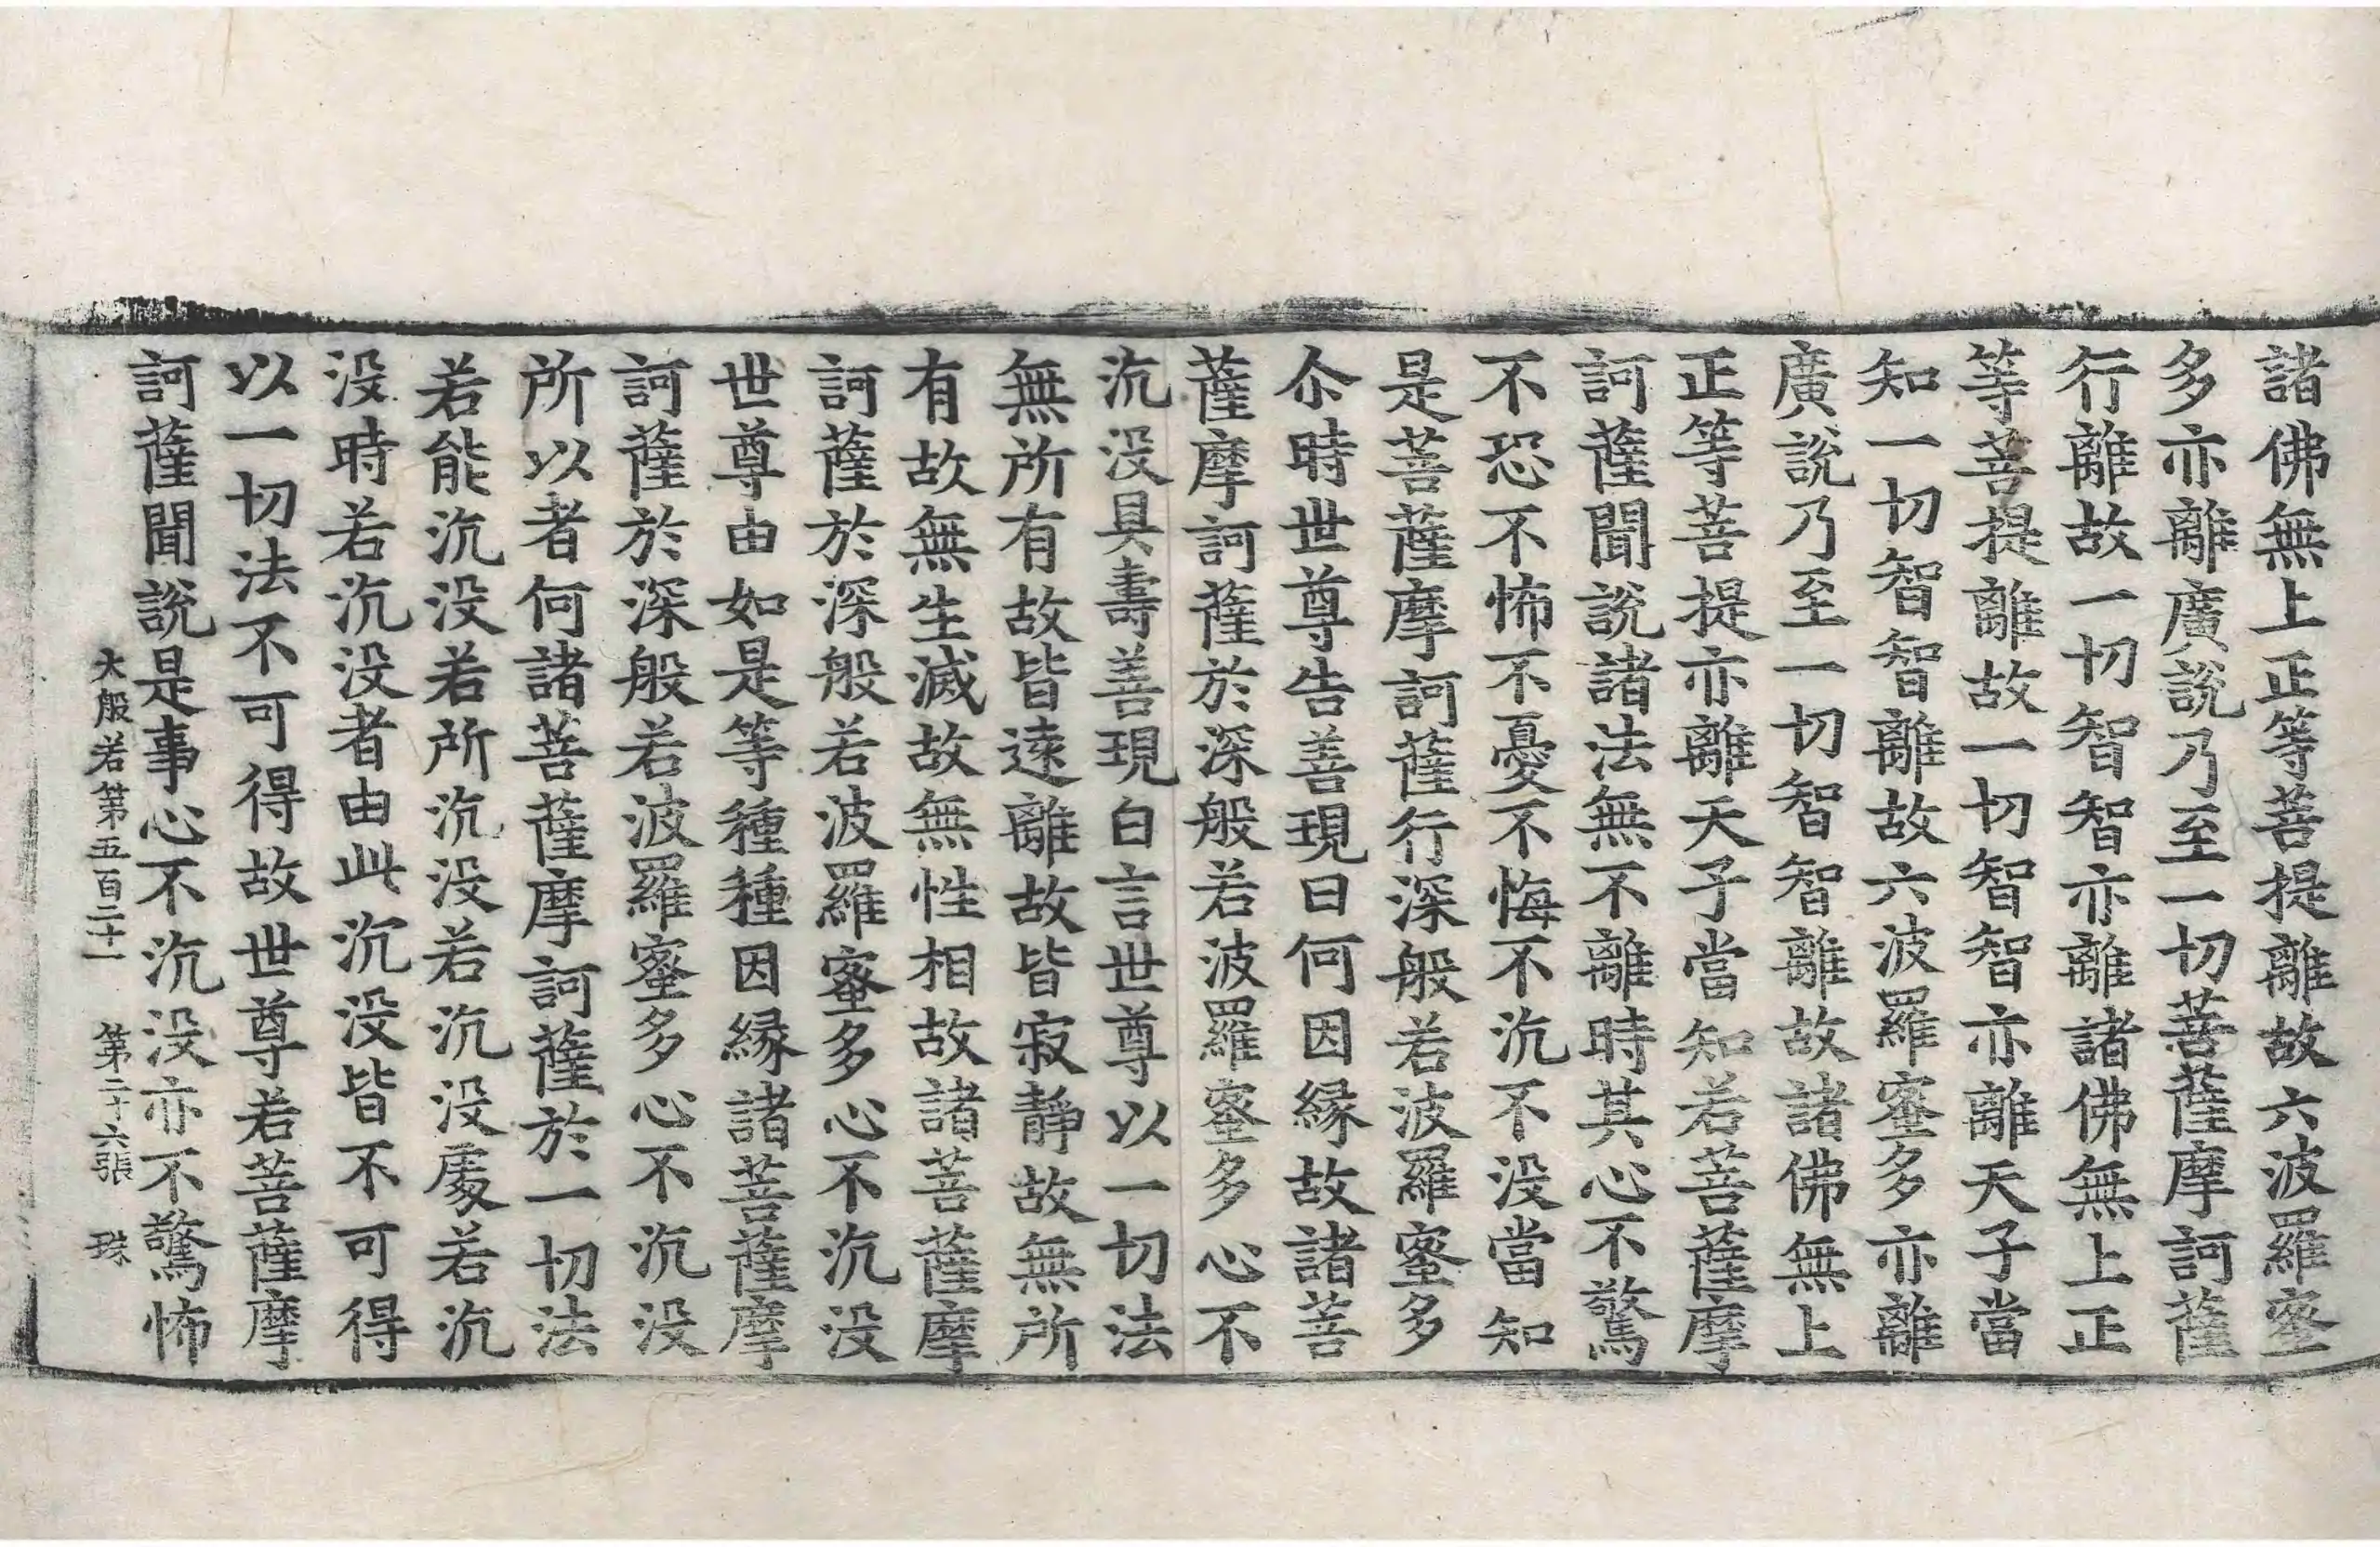 諸佛無上正等菩提離故六波羅蜜
多亦離廣說乃至一切菩薩摩訶薩
行離故一切智智亦離諸佛無上正
等菩提離故一切智智亦離天子當
知一切智智離故六波羅蜜多亦離
廣說乃至一切智智離故諸佛無上
正等菩提亦離天子當知若菩薩摩
訶薩聞說諸法無不離時其心不驚
不恐不怖不憂不悔不沉不沒當知
是菩薩摩訶薩行深般若波羅蜜多
尒時世尊告善現曰何因緣故諸菩
薩摩訶薩於深般若波羅蜜多心不
沉沒具壽善現白言世尊以一切法
無所有故皆遠離故皆寂靜故無所
有故無生滅故無性相故諸菩薩摩
訶薩於深般若波羅蜜多心不沉沒
世尊由如是等種種因緣諸菩薩摩
訶薩於深般若波羅蜜多心不沉沒
所以者何諸菩薩摩訶薩於一切法
若能沉沒若所沉沒若沉沒處若沉
沒時若沉沒者由此沉沒皆不可得
以一切法不可得故世尊若菩薩摩
訶薩聞說是事心不沉沒亦不驚怖
大般若第五百二十一 第二十六張 珠